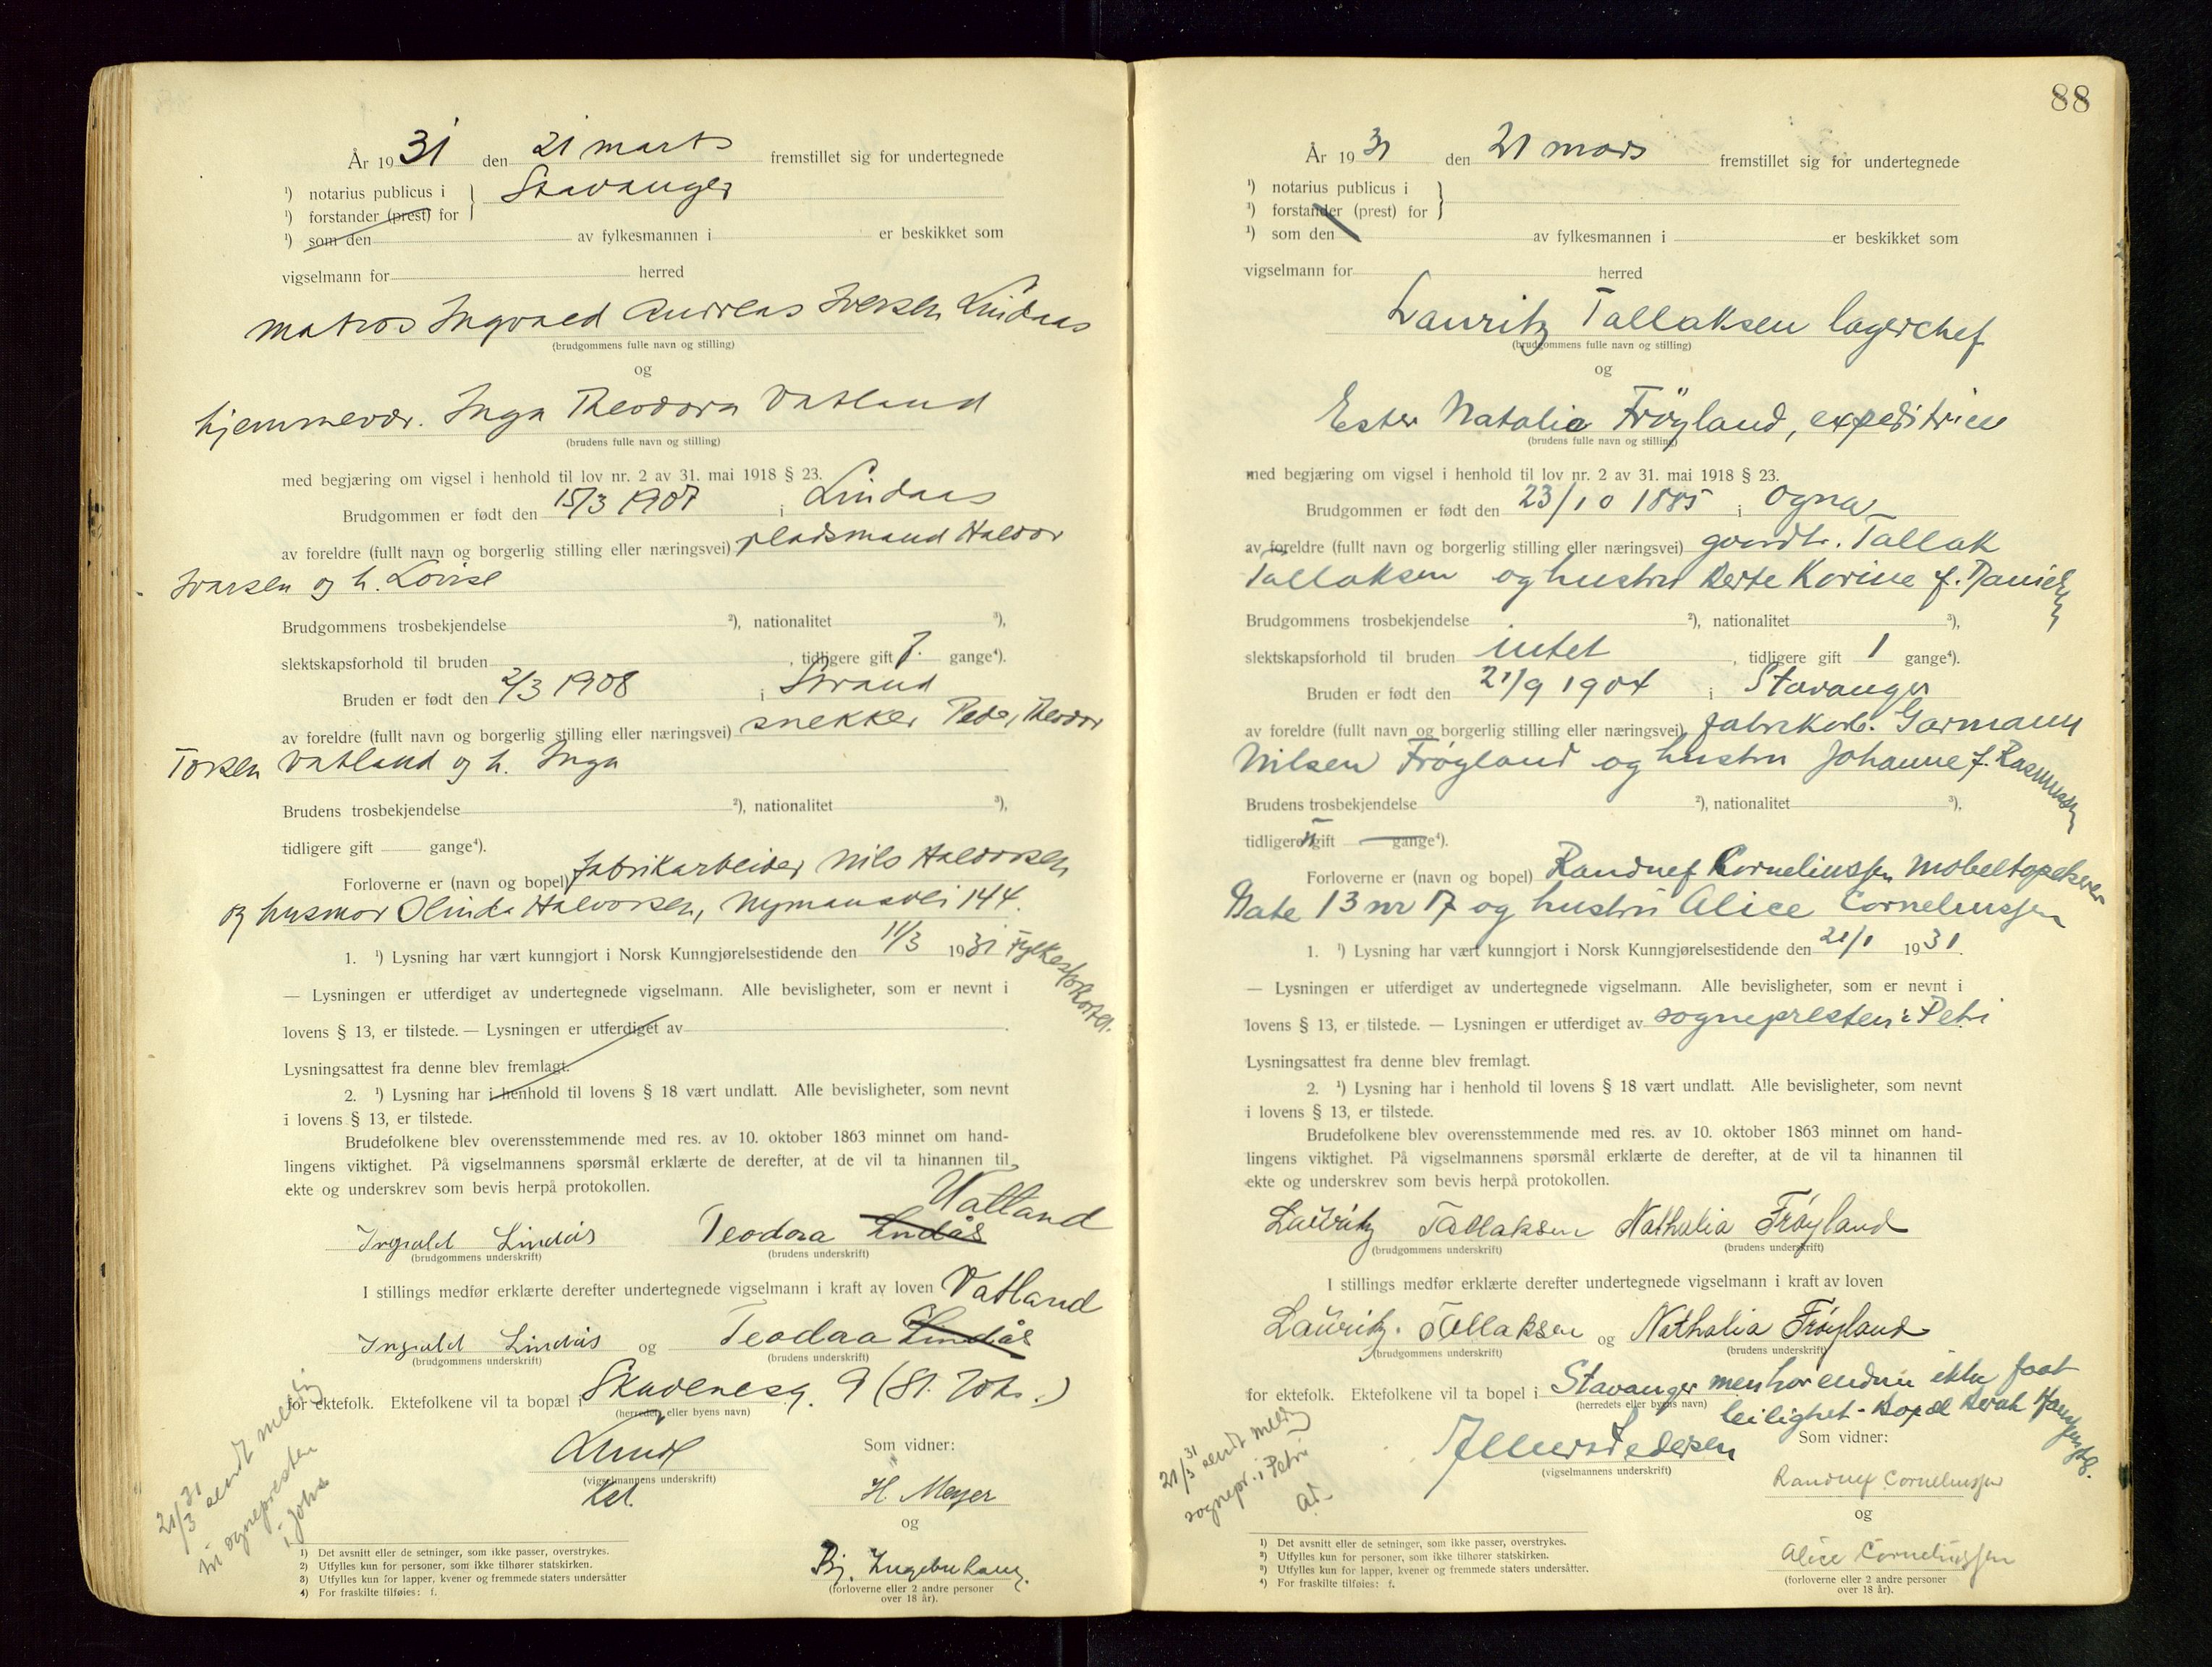 År 1931 den 21 marts fremstillet sig for undertegnede
¹) notarius publicus i } Stavanger
¹) forstander (prest) for
¹) som den av fylkesmannen i er beskikket som
vigselmann for herred
matros Ingvald Andreas Iversen Lindaas
(brudgommens fulle navn og stilling)
og
hjemmevær. Inga Theodora Vatland
(brudens fulle navn og stilling)
med begjæring om vigsel i henhold til lov nr. 2 av 31. mai 1918 § 23.
Brudgommen er født den 15/3 1907 i Lindaas
av foreldre (fullt navn og borgerlig stilling eller næringsvei) pladsmand Halvor
Ivarsen og h. Lovise
Brudgommens trosbekjendelse ²), nationalitet ³),
slektskapsforhold til bruden , tidligere gift gange⁴).
Bruden er født den 2/3 1908 i Strand
av foreldre (fullt navn og borgerlig stilling eller næringsvei) snekker Peder Theodor
Torsen Vatland og h. Inga
Brudens trosbekjendelse ²), nationalitet ³),
tidligere gift gange⁴).
Forloverne er (navn og bopel) fabrikarbeider Nils Halvorsen
og husmor Olinda Halvorsen, Nymansvei 144.
1. ¹) Lysning har vært kunngjort i Norsk Kunngjørelsestidende den 11/3 1931
— Lysningen er utferdiget av undertegnede vigselmann. Alle bevisligheter, som er nevnt i
lovens § 13, er tilstede. — Lysningen er utferdiget av
Lysningsattest fra denne blev fremlagt.
2. ¹) Lysning har i henhold til lovens § 18 vært undlatt. Alle bevisligheter, som nevnt
i lovens § 13, er tilstede.
Brudefolkene blev overensstemmende med res. av 10. oktober 1863 minnet om hand-
lingens viktighet. På vigselmannens spørsmål erklærte de derefter, at de vil ta hinannen til
ekte og underskrev som bevis herpå protokollen.
Vatland
Ingvald Lindås Teodora Lindås
(brudgommens underskrift) (brudens underskrift)
I stillings medfør erklærte derefter undertegnede vigselmann i kraft av loven Vatland
Ingvald Lindås og Teodora Lindås
(brudgommens underskrift) (brudens underskrift)
for ektefolk. Ektefolkene vil ta bopæl i Skudenesg. 9 (St. Johs.)
(herredets eller byens navn)
Som vidner:
(vigselmannens underskrift)
Kst.
H. Meyer
og
(forloverne eller 2 andre personer
over 18 år).
21/3 31 sendt melding
til sognepresten
i Johs
1) Det avsnitt eller de setninger, som ikke passer, overstrykes.
2) Utfylles kun for personer, som ikke tilhører statskirken.
3) Utfylles kun for lapper, kvener og fremmede staters undersåtter
4) For fraskilte tilføies: f.
88
År 1931 den 21 mars fremstillet sig for undertegnede
¹) notarius publicus i }
¹) forstander (prest) for
¹) som den av fylkesmannen i er beskikket som
vigselmann for herred
Lauritz Tallaksen lagerchef
(brudgommens fulle navn og stilling)
og
Ester Natalie Frøyland, expeditrice
(brudens fulle navn og stilling)
med begjæring om vigsel i henhold til lov nr. 2 av 31. mai 1918 § 23.
Brudgommen er født den 23/10 1885 i Ogna
av foreldre (fullt navn og borgerlig stilling eller næringsvei) gaardbr. Tallak
Tallaksen og hustru Berte Korine f. Danielsen
Brudgommens trosbekjendelse ²), nationalitet ³),
slektskapsforhold til bruden intet , tidligere gift 1 gange⁴).
Bruden er født den 21/9 1904 i Stavanger
av foreldre (fullt navn og borgerlig stilling eller næringsvei) fabrikarb. Garmann
Nilsen Frøyland og hustru Johanne f. Rasmussen
Brudens trosbekjendelse ²), nationalitet ³),
tidligere gift gange⁴).
Forloverne er (navn og bopel) Randulf Corneliussen møbeltapetserer
Gate 13 nr 17 og hustru Alice Corneliussen
1. ¹) Lysning har vært kunngjort i Norsk Kunngjørelsestidende den 21/1 1931.
— Lysningen er utferdiget av undertegnede vigselmann. Alle bevisligheter, som er nevnt i
lovens § 13, er tilstede. — Lysningen er utferdiget av sognepresten i Petri
Lysningsattest fra denne blev fremlagt.
2. ¹) Lysning har i henhold til lovens § 18 vært undlatt. Alle bevisligheter, som nevnt
i lovens § 13, er tilstede.
Brudefolkene blev overensstemmende med res. av 10. oktober 1863 minnet om hand-
lingens viktighet. På vigselmannens spørsmål erklærte de derefter, at de vil ta hinannen til
ekte og underskrev som bevis herpå protokollen.
Lauritz Tallaksen Nathalia Frøyland
(brudgommens underskrift) (brudens underskrift)
I stillings medfør erklærte derefter undertegnede vigselmann i kraft av loven
Lauritz Tallaksen og Nathalia Frøyland
(brudgommens underskrift) (brudens underskrift)
for ektefolk. Ektefolkene vil ta bopel i Stavanger men har endnu ikke faat
(herredets eller byens navn) leilighet
Som vidner:
(vigselmannens underskrift)
Randulf Corneliussen
og
Alice Corneliussen
(forloverne eller 2 andre personer
over 18 år).
21/3 31 sendt meld
sognepr. i Petri
1) Det avsnitt eller de setninger, som ikke passer, overstrykes.
2) Utfylles kun for personer, som ikke tilhører statskirken.
3) Utfylles kun for lapper, kvener og fremmede staters undersåtter.
4) For fraskilte tilføies: f.